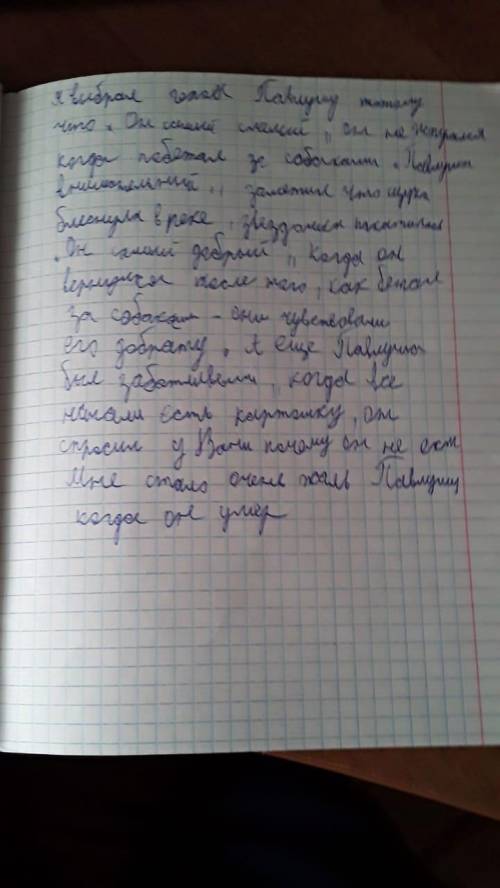 я выбрал героя Павлушу потому
что. Он самый смелый, он не испугался
когда побежал за собаками. Павлуша
внимательный, заметил что щука
блеснула в реке, звездочки покатились
Он самый добрый, когда он
вернулся после того, как бегал
за собакам - они чувствовали
его доброту. А еще Павлуша
был заботливым, когда все
начали есть картошку, он
спросил у Вани почому он не ест
Мне стало очень жаль Павлушу
когда он умер